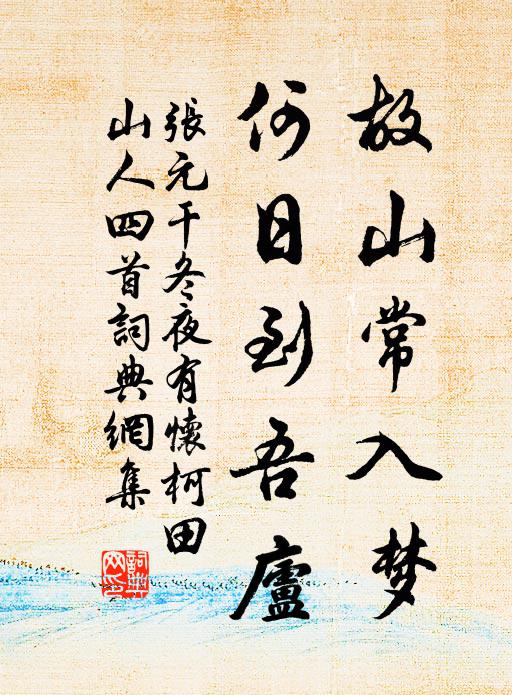 故山常入梦
何日到吾廬
張元干冬夜有懷柯田
山人四首詞典網集